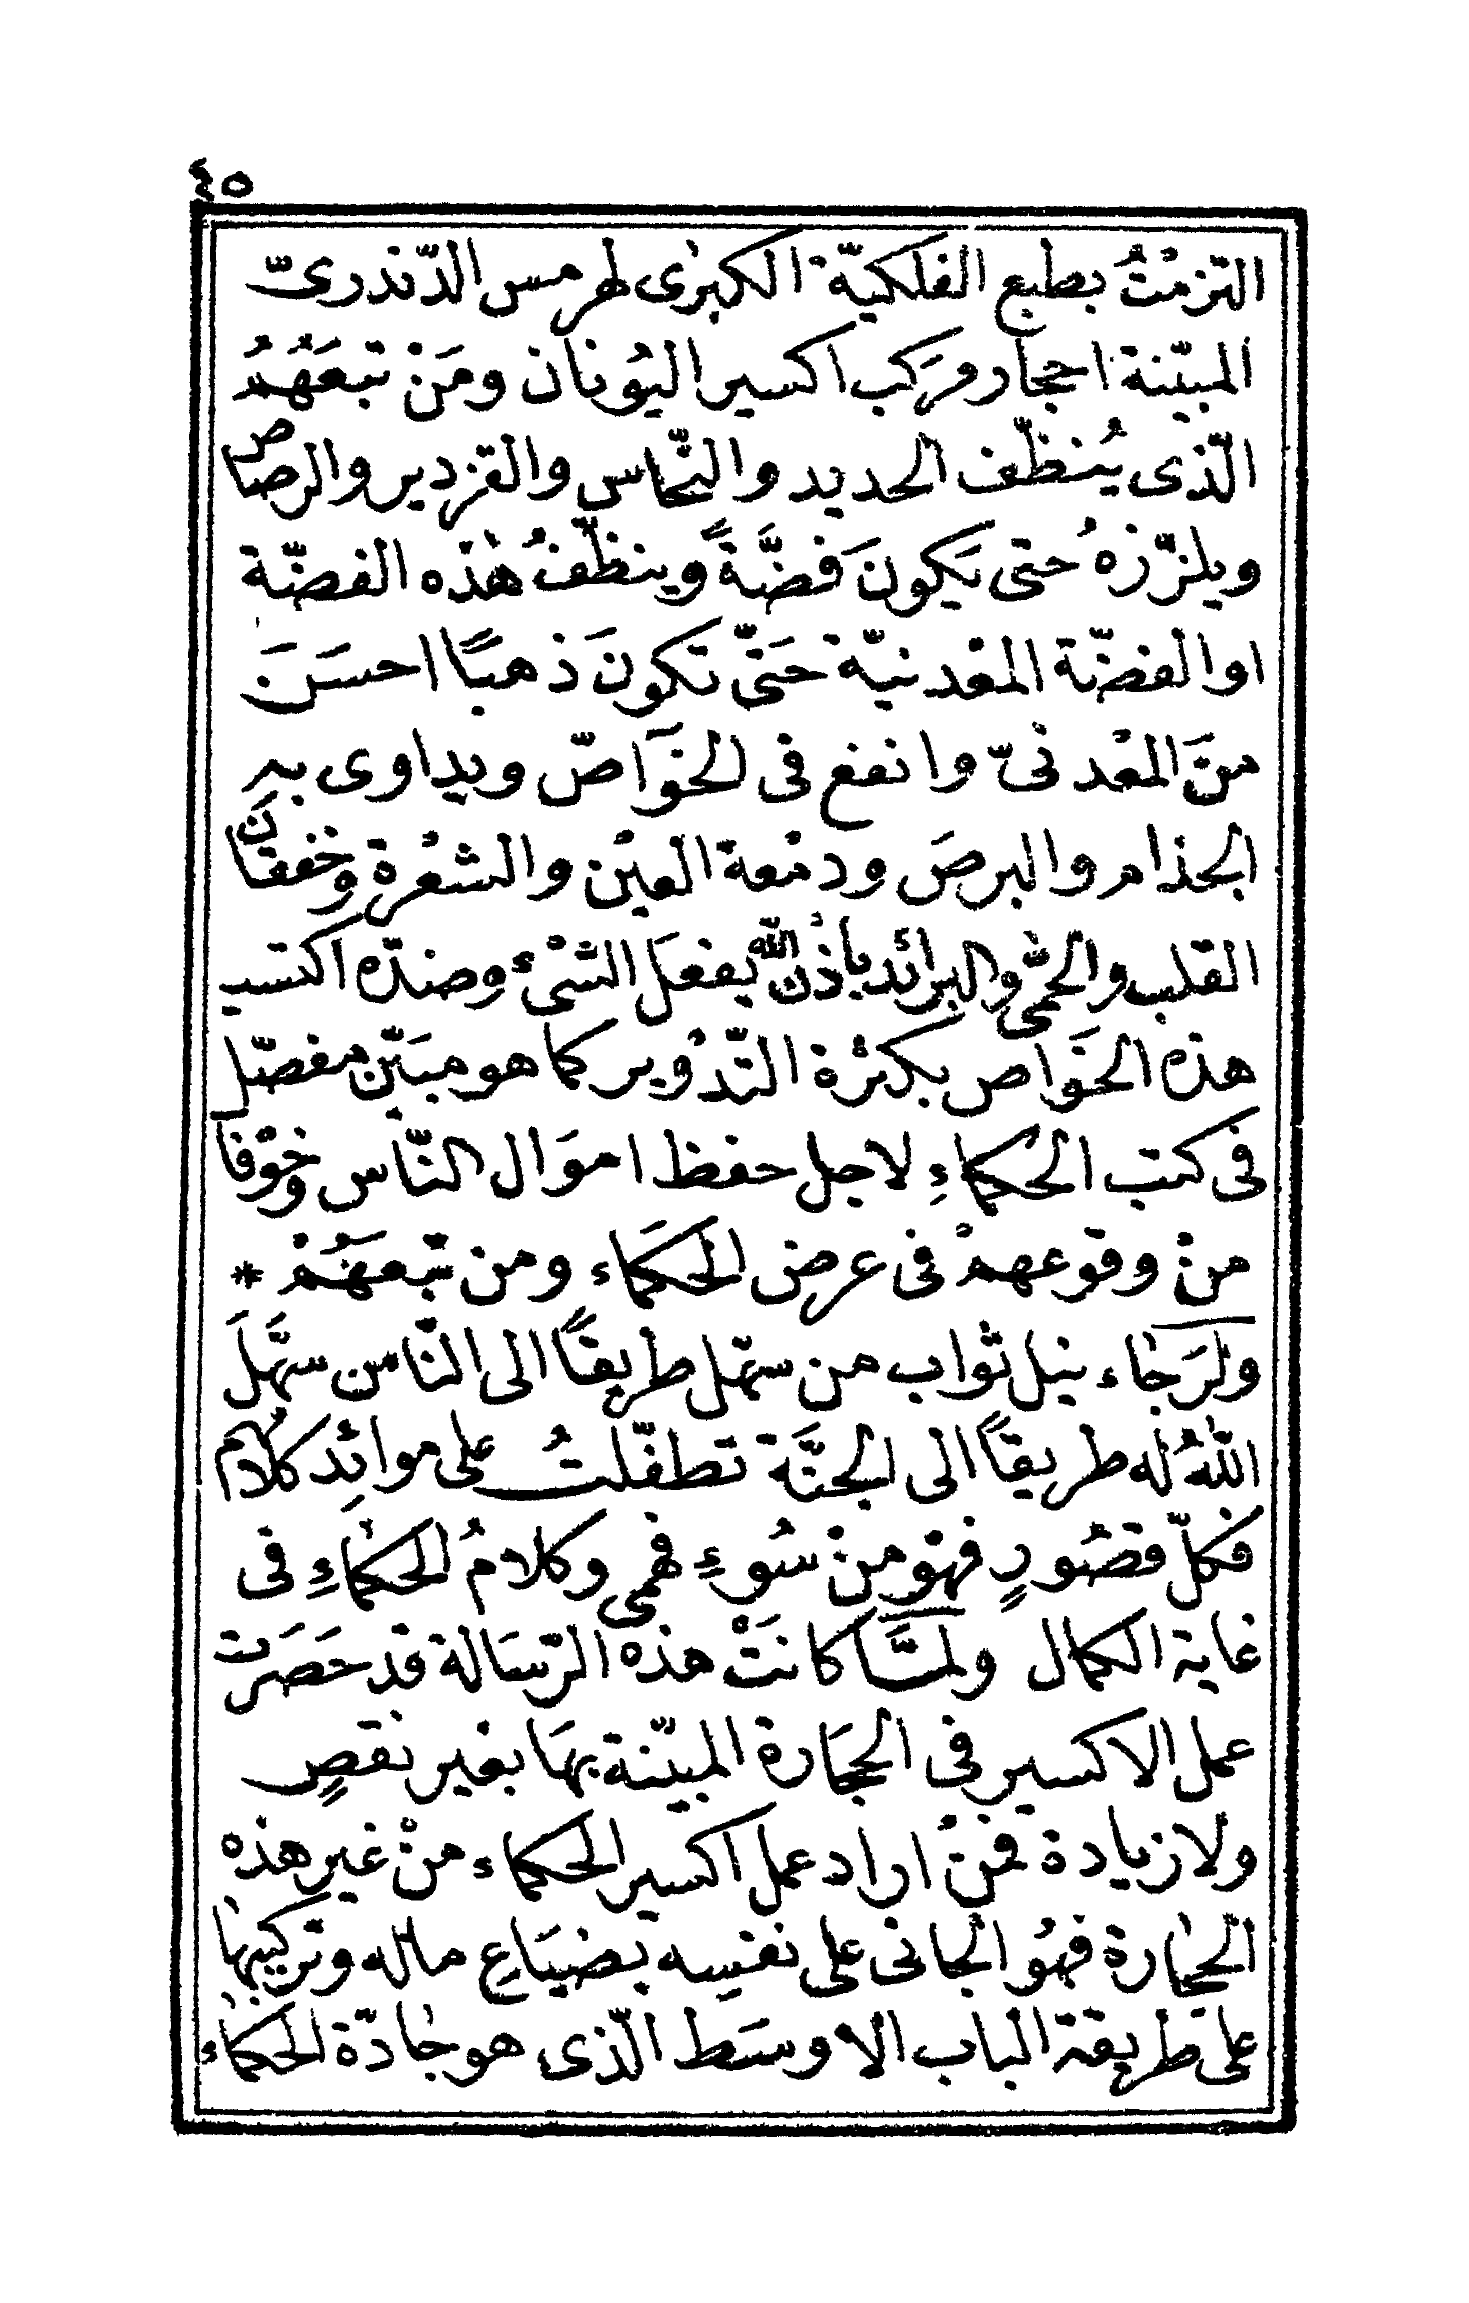 ٤٥
التزمْتُ بطبع الفلكيّة الكبرى لهرمس الدّندرىّ
المبيّنة احجار مركب اكسير اليُونان ومَنْ تبعَهُمُ
الّذى يُنظّف الحديد والنّحاس والقزدير والرصاص
ويلزّزهُ حتى يَكونَ فضَّةً وينظّفُ هٰذه الفضّة
او الفضّة المعْدنيّة حَتّى تكونَ ذهبًا احسَنَ
منَ المعْدنىّ وانفع فى الخَوَاصّ ويداوى به
الجذام والبرصَ ودمْعة العيْن والشعْرة وخفقانَ
القلب والحُمّى والبرائد باذْن اللّه يفعَل الشىْء وضدّه اكتسب
هذه الخَوَاص بكثْرة التّدْوير كما هو مبَيّن مفصّل
فى كتب الحُكماءِ لاجل حفظ اموَال النّاس وخوْفا
منْ وقوعهمْ فى عرض الحكَماء ومن تبعَهُمْ *
ولرَجٰاء نيل ثواب من سهّل طريقًا الى النّاس سَهَّلَ
اللّٰهُ له طريقًا الى الجنَّة تطفّلتُ على موائدِ كلامِ
فكلّ قصُورٍ فهْو منْ سُوءِ فهْمى وكلامُ الحكٰماءِ فى
غاية الكمال ولمّا كانَتْ هذه الرّسَالة قد حَصَرَت
عمل الاكسير فى الحجَارة المبيّنة بهَا بغير نقصٍ
ولا زيادة فمَنْ اراد عمل اكسير الحكماء منْ غير هذه
الحجٰارة فهُو الجانى على نفسِه بضيَاعِ ماله وتركيبهٰا
على طريقة الباب الاوسَط الّذى هو جٰادّة الحكمٰاء